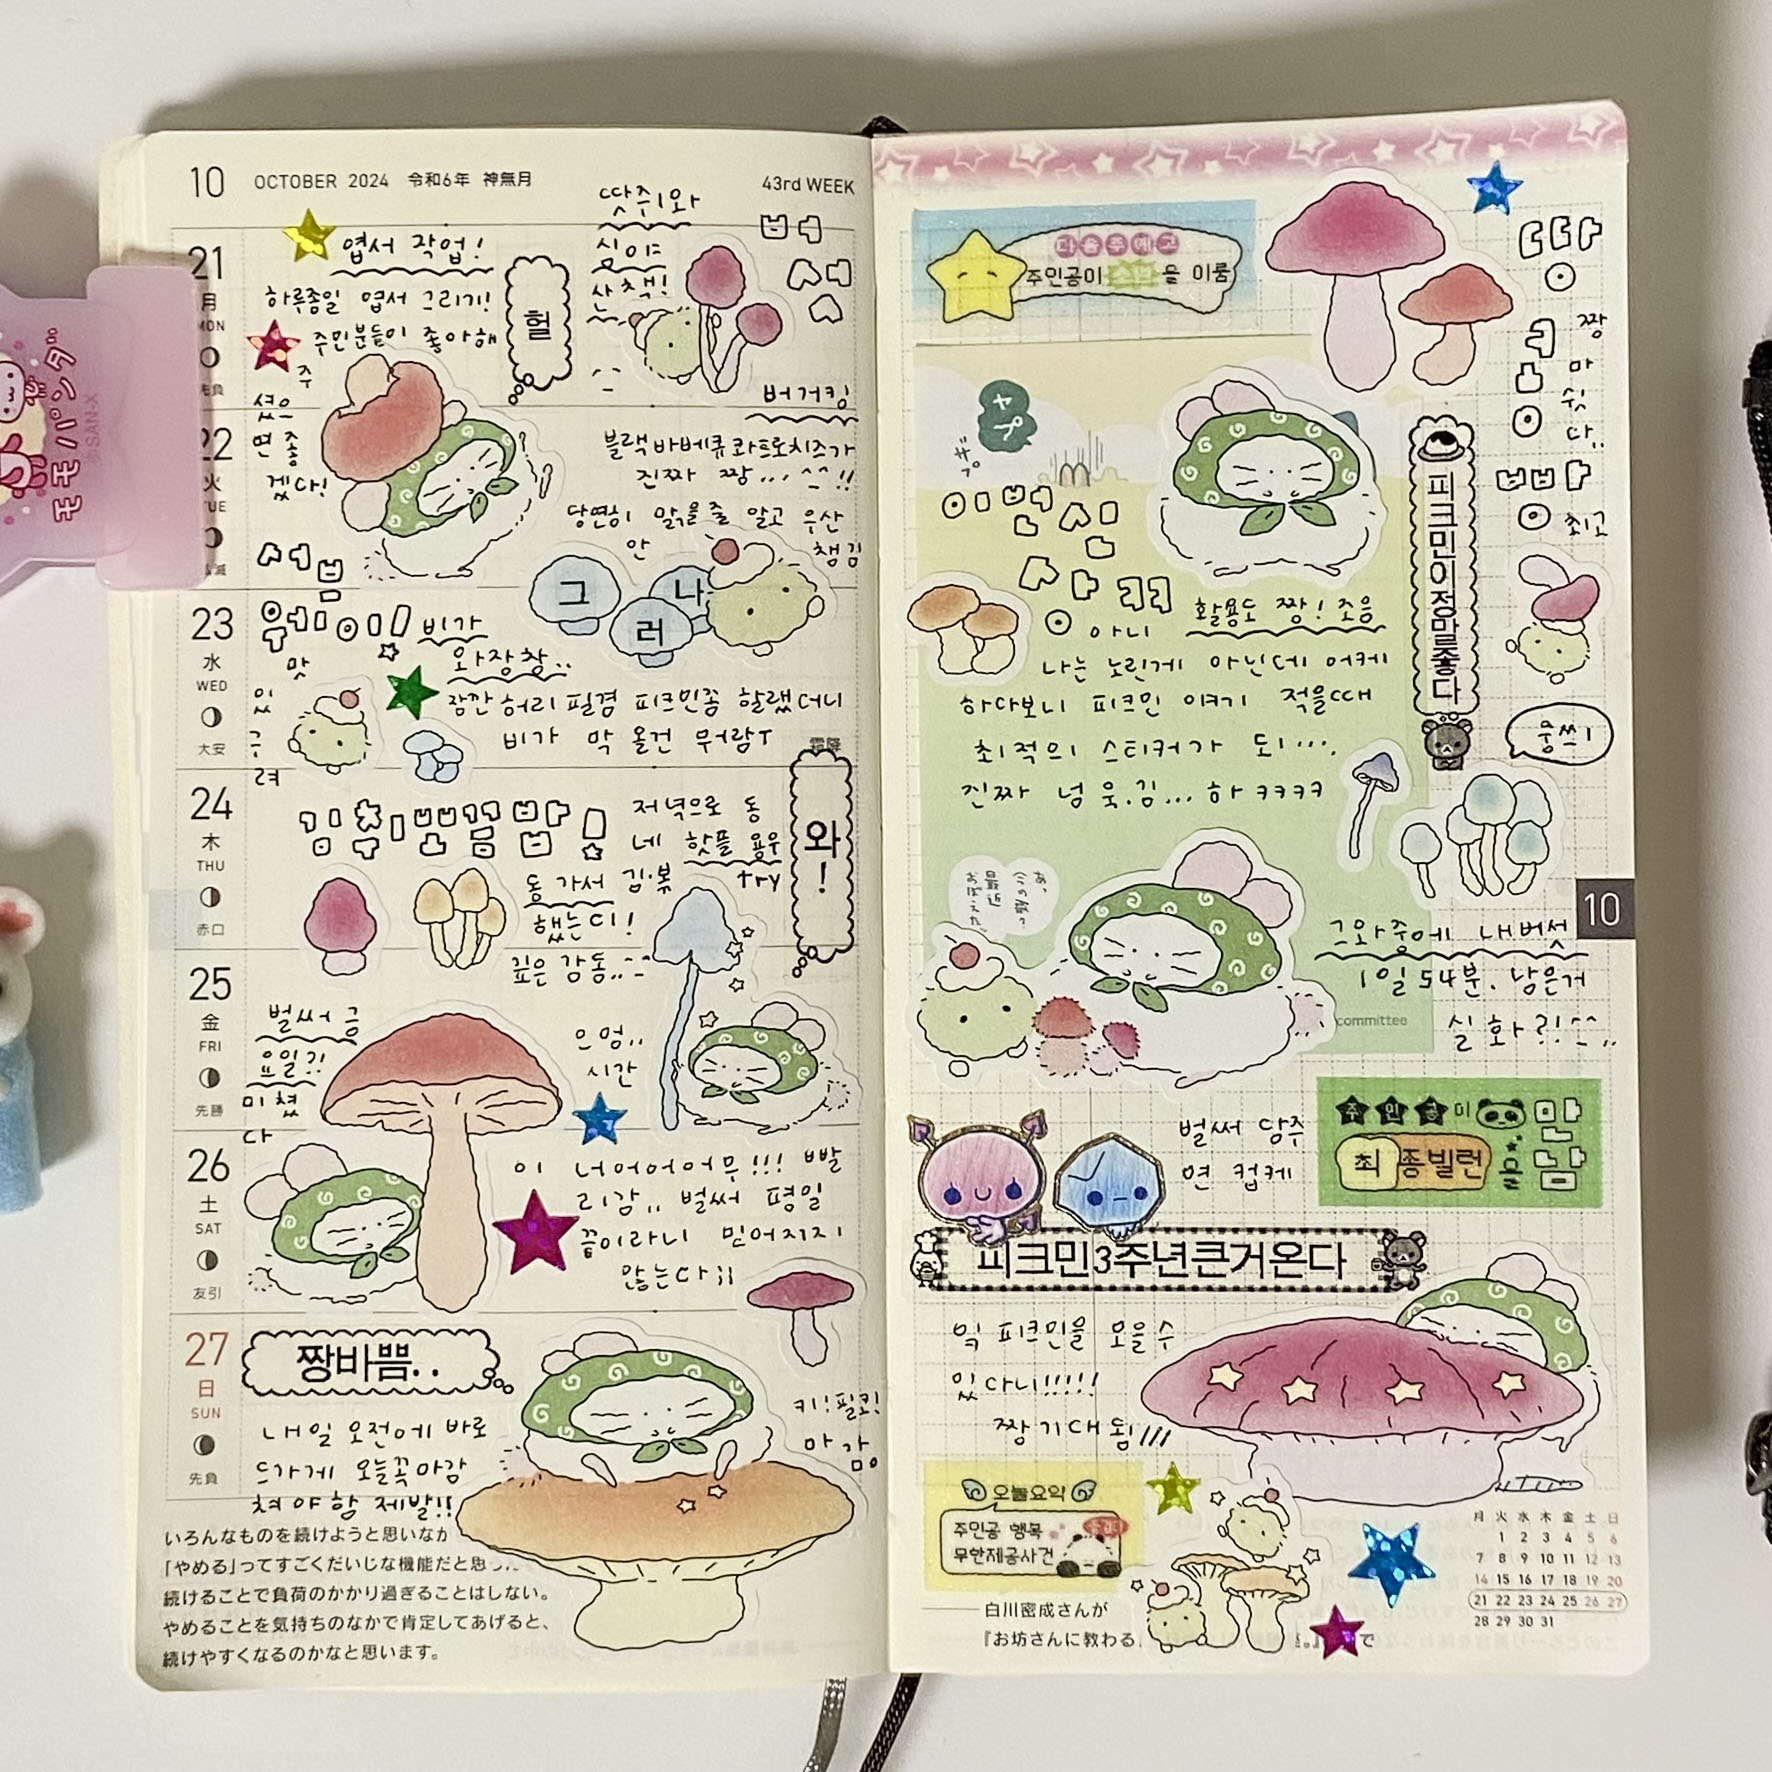 10 OCTOBER 2024 令和6年 神無月 43rd WEEK
21
月
MON
先負
엽서 작업!
하루종일 엽서 그리기!
주민분들이 좋아해
주
셨으
면 좋
겠다!
헐
땃쥐와
심야
산책!
버
섯
22
火
TUE
버거킹
블랙바베큐콰트로치즈가
진짜 짱... ^^!!
당연히 맑을줄 알고 우산
안 챙김
그
러
나
23
水
WED
大安
비가
와장창..
잠깐 허리 필겸 피크민좀 할랬더니
비가 막 올건 뭐람ㅜ
맛
있
구
려
霜降
24
木
THU
赤口
김취뽀끔밥!
저녁으로 동
네 핫플 용우
동 가서 김·볶 try
했는디!
깊은 감동..^^
와!
25
金
FRI
先勝
벌써 금
요일?!
미쳤
다
으엄..
시간
26
土
SAT
友引
이 너어어어어무!!! 빨
리감.. 벌써 평일
끝이라니 믿어지지
않는다;;
27
日
SUN
先負
짱바쁨..
내일 오전에 바로
드가게 오늘꼭마감
쳐야함 제발!!
마감
いろんなものを続けようと思いなが
「やめる」ってすごくだいじな機能だと思
続けることで負荷のかかり過ぎることはしない。
やめることを気持ちのなかで肯定してあげると、
続けやすくなるのかなと思います。
다음주예고
주인공미 을 이룸
짱
마
쉿
다..
최고
피크민이정말좋다
아니 활용도 짱! 조음
나는 노린게 아닌데 어케
하다보니 피크민 얘기 적을때
최적의 스티커가 되....
진짜 넘 웃.김... 하 ㅋㅋㅋㅋ
웅쓰!
그와중에 내버섯
1일 54분. 남은거
실화?!^^..
committee
10
벌써 담주
면 컵케
주인공미 만남
최종빌런을
피크민3주년큰거온다
익 피크민을 모을수
있다니!!!!!
짱기대됨!!!
오늘요약
주인공 행복
무한제공사건
白川密成さんが
『お坊さんに教わる
で
月 火 水 木 金 土 日
1 2 3 4 5 6
7 8 9 10 11 12 13
14 15 16 17 18 19 20
21 22 23 24 25 26 27
28 29 30 31
モモパンダ
©SAN-X